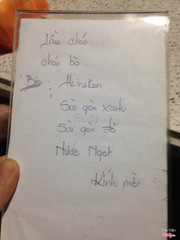 Lẩu cháo
cháo bò
Bia: Heineken
Sài gòn xanh
Sài gòn đỏ
Nước Ngọt
Kính mời